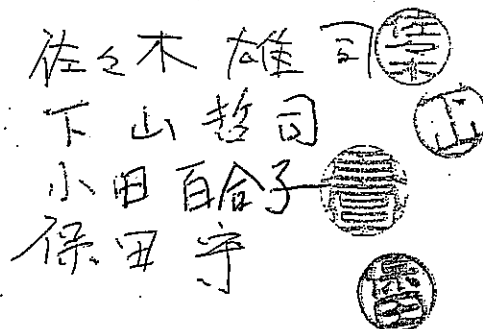 佐々木 雄司
下山哲司
小田百合子
保田守